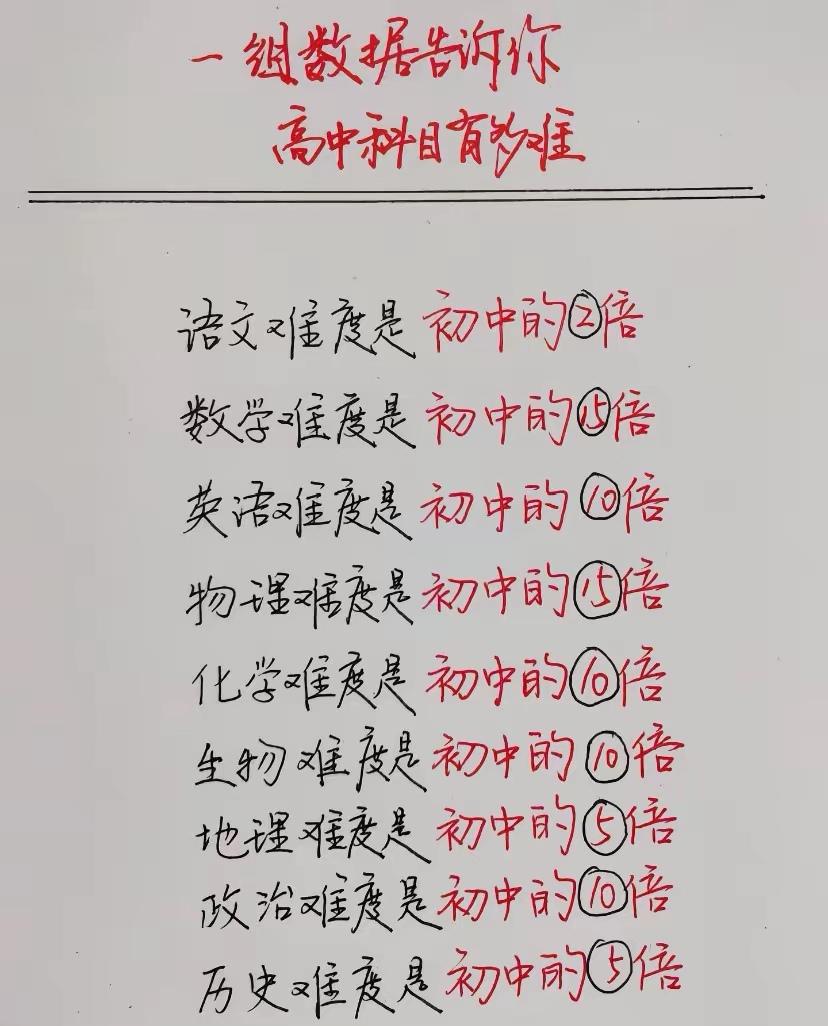 一组数据告诉你
高中科目有多难
语文难度是初中的2倍
数学难度是初中的15倍
英语难度是初中的10倍
物理难度是初中的15倍
化学难度是初中的10倍
生物难度是初中的10倍
地理难度是初中的5倍
政治难度是初中的10倍
历史难度是初中的5倍